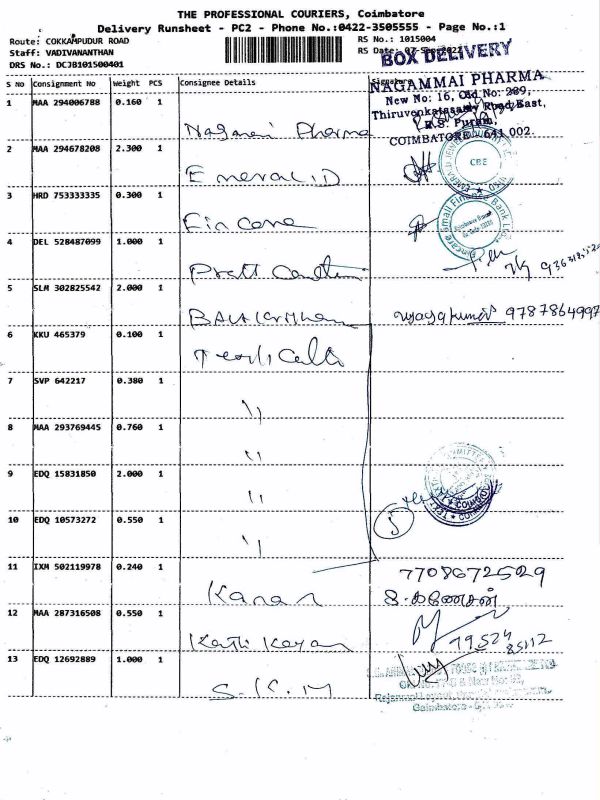 THE PROFESSIONAL COURIERS, Coimbatore
Delivery Runsheet - PC2 - Phone No.:0422-3505555 - Page No.:1
Route: COKKAMPUDUR ROAD
RS No.: 1015004
Staff: VADIVANANTHAN
RS Date:
BOX DELIVERY
DRS No.: DCJB101500401
S No Consignment No Weight PCS Consignee Details Signature
NAGAMMAI PHARMA
New No: 16, Old No: 289,
Thiruvenkatasamy Road East,
R.S. Puram,
COIMBATORE - 641 002.
1 MAA 294006788 0.160 1 Nagamai Pharma
2 MAA 294678208 2.300 1 Emerald
CBE
3 HRD 753333335 0.300 1 Fin Care
Small Finance Bank
4 DEL 528487099 1.000 1
5 SLM 302825542 2.000 1 9787864997
6 KKU 465379 0.100 1
7 SVP 642217 0.380 1 "
8 MAA 293769445 0.760 1 "
9 EDQ 15831850 2.000 1 "
10 EDQ 10573272 0.550 1 "
5
7708672529
11 IXM 502119978 0.240 1 Kanan
12 MAA 287316508 0.550 1 79524
85112
13 EDQ 12692889 1.000 1 S.K.M
Coimbatore